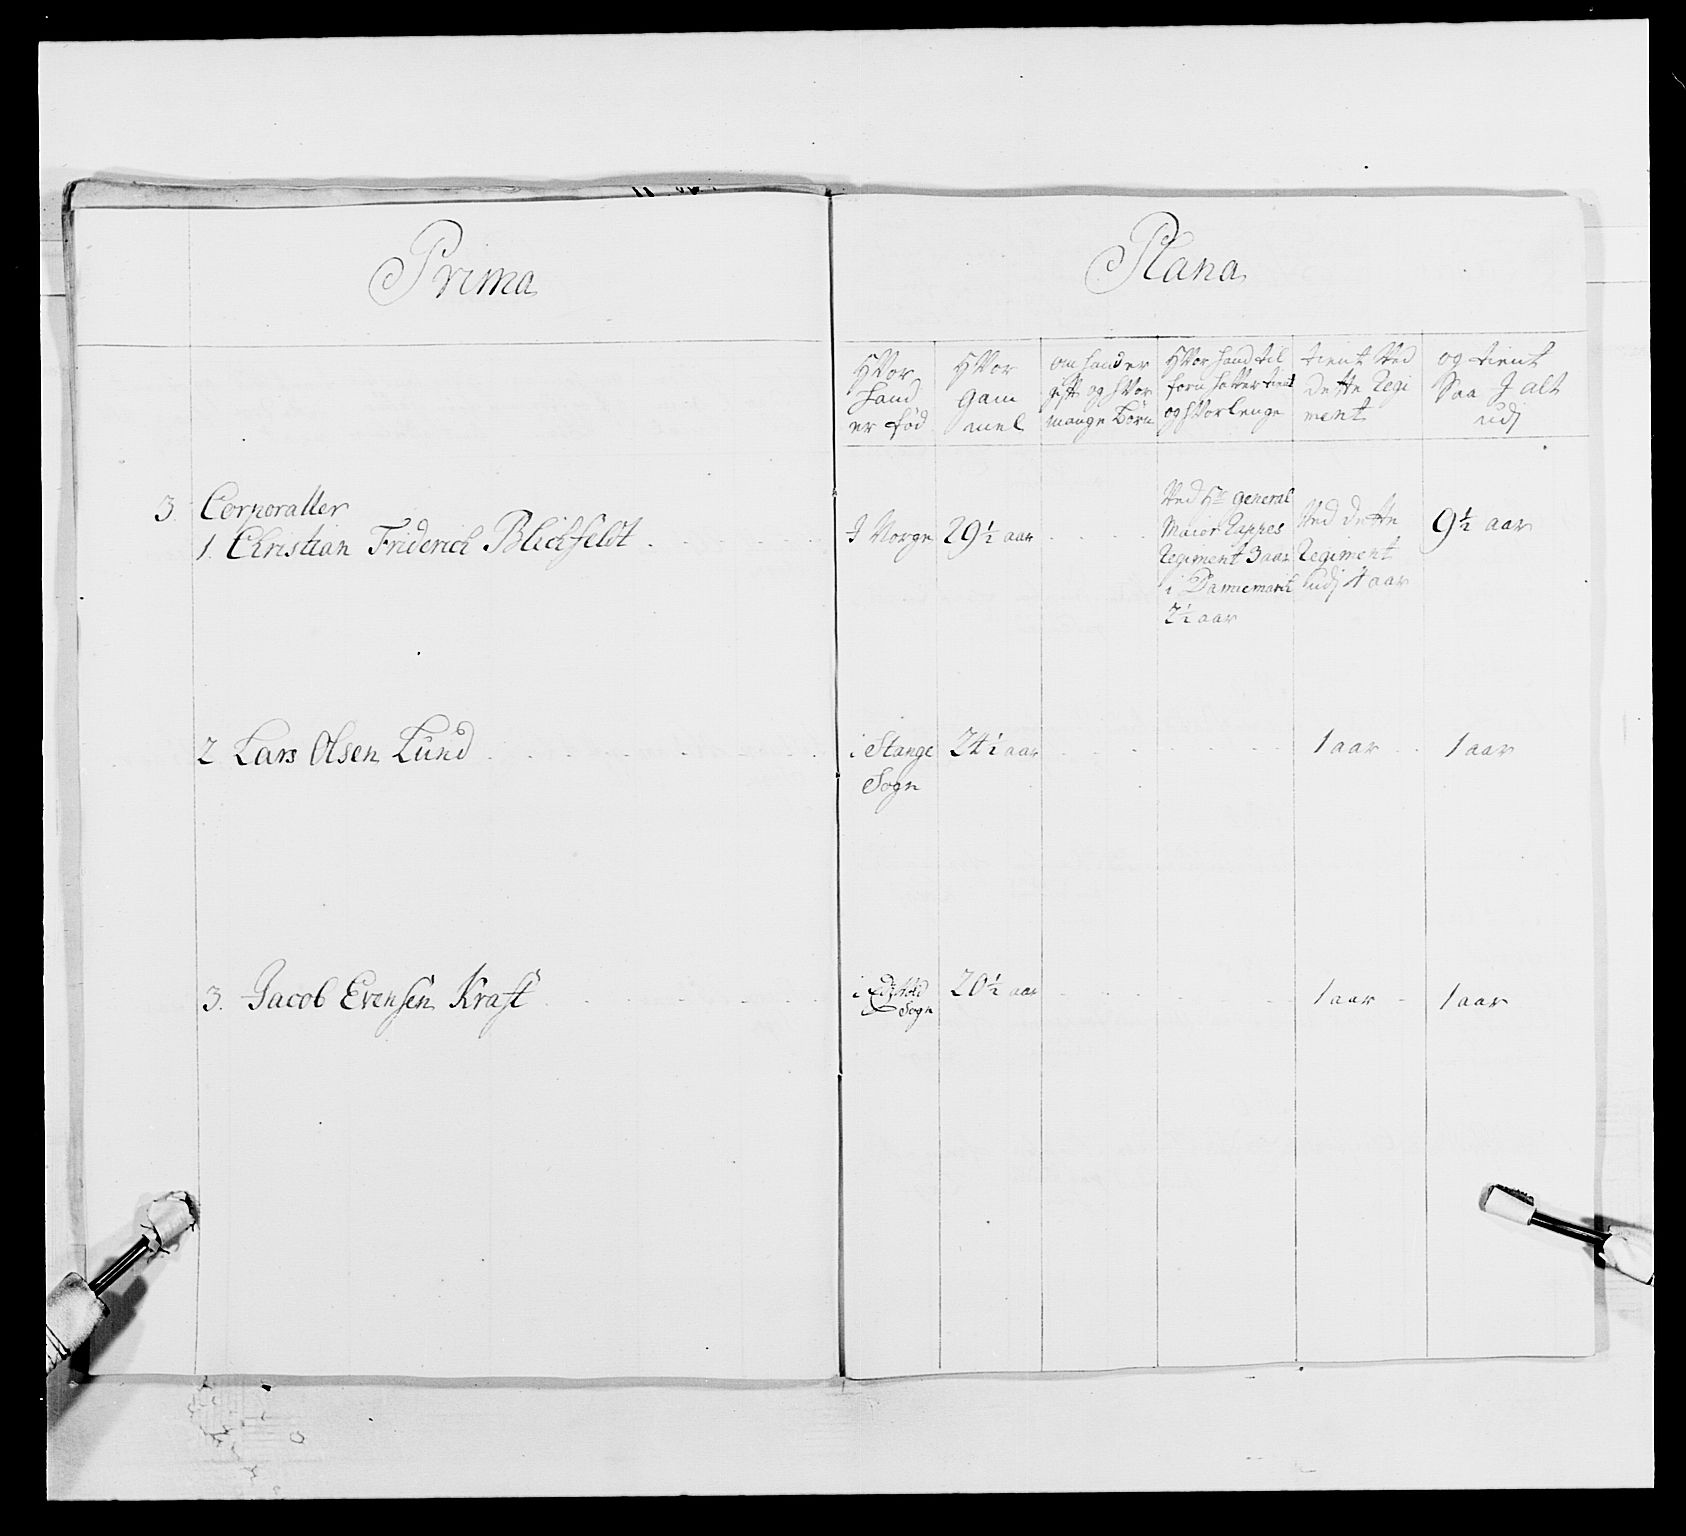 Prima
Plana
Hvor
hand
er fød
Hvor
gam
mel
om hand er
gift og hvor
mange Børn
Hvor hand til
forn haver tient
og hvor lenge
tient ved
dette Regi
ment
og tient
saa J alt
udj
3 Corporaller
1. Christian Friderich Blichfeldt
J Norge
29½ aar
Ved Hr General
Maior Rappes
Regiment 3 aar
i Dannemarck
2½ aar
Ved dette
Regiment
udj 4 aar
9½ aar
2 Lars Olsen Lund
i Stange
Sogn
24½ aar
1 aar
1 aar
3. Jacob Evensen Kraft
i
Sogn
20½ aar
1 aar
1 aar